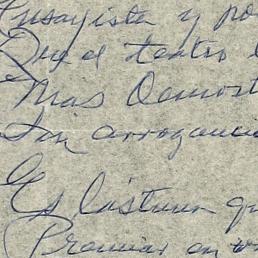 Ensayista y po
Que el teatro
Mas Demost
Sin arrogancia
Es lástima qu
Premiar en